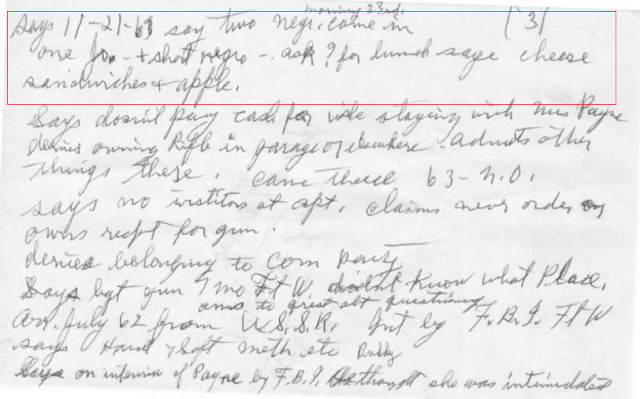 morning 23rd.
says 11-21-63 say two negr. came in (3)
one Jr. + short negro - ask? for lunch says cheese
sandwiches + apple.
Says doesn't pay cash for wife staying with Mrs Payne
denies owning rifle in garage or elsewhere. admits other
things there. Came there 63 - N.O.
says no visitors at apt. claims never order
owns recpt for gun.
denies belonging to Com party
Says bgt gun 7 mo Ft W. didn't know what Place.
ams to grest abt questioning
Arv. July 62 from U.S.S.R. Int by F.B.I. Ft W
says Hard & Soft meth etc Buddy
Says on interview of Payne by F.B.I. He thought she was intimidated